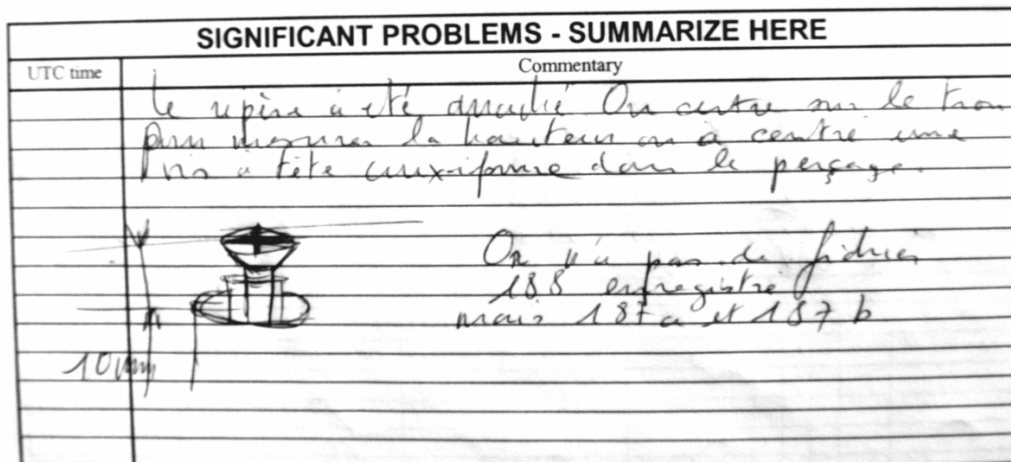 SIGNIFICANT PROBLEMS - SUMMARIZE HERE
UTC time
Commentary
Le repère a été On centre sur le trou
pour mesurer la hauteur on a centré une
vis à tête cruxiforme dans le perçage.
On n'a pas de fichier
188 enregistré
mais 187a et 187b
10mm